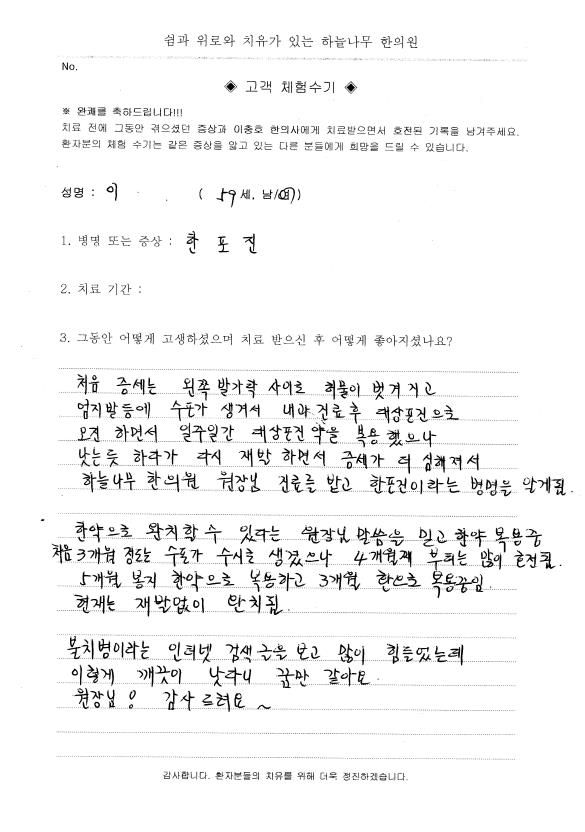 쉼과 위로와 치유가 있는 하늘나무 한의원
No.
◈ 고객 체험수기 ◈
※ 완쾌를 축하드립니다!!!
치료 전에 그동안 겪으셨던 증상과 이충호 한의사에게 치료받으면서 호전된 기록을 남겨주세요.
환자분의 체험 수기는 같은 증상을 앓고 있는 다른 분들에게 희망을 드릴 수 있습니다.
성명 : 이 ( 59세, 남/여)
1. 병명 또는 증상 : 한 포 진
2. 치료 기간 :
3. 그동안 어떻게 고생하셨으며 치료 받으신 후 어떻게 좋아지셨나요?
처음 증세는 왼쪽 발가락 사이로 허물이 벗겨지고
엄지발등에 수포가 생겨서 내과진료후 대상포진으로
오진 하면서 일주일간 대상포진약을 복용했으나
낫는듯 하다가 다시 재발하면서 증세가 더 심해져서
하늘나무 한의원 원장님 진료를 받고 한포진이라는 병명을 알게됨.
한약으로 완치할 수 있다는 원장님 말씀을 믿고 한약 복용중
처음 3개월 정도는 수포가 수시로 생겼으나 4개월째 부터는 많이 호전됨.
5개월 봉지 한약으로 복용하고 3개월 환으로 복용중임.
현재는 재발없이 완치됨.
불치병이라는 인터넷 검색글을 보고 많이 힘들었는데
이렇게 깨끗이 낫다니 꿈만 같아요.
원장님! 감사 드려요~
감사합니다. 환자분들의 치유를 위해 더욱 정진하겠습니다.